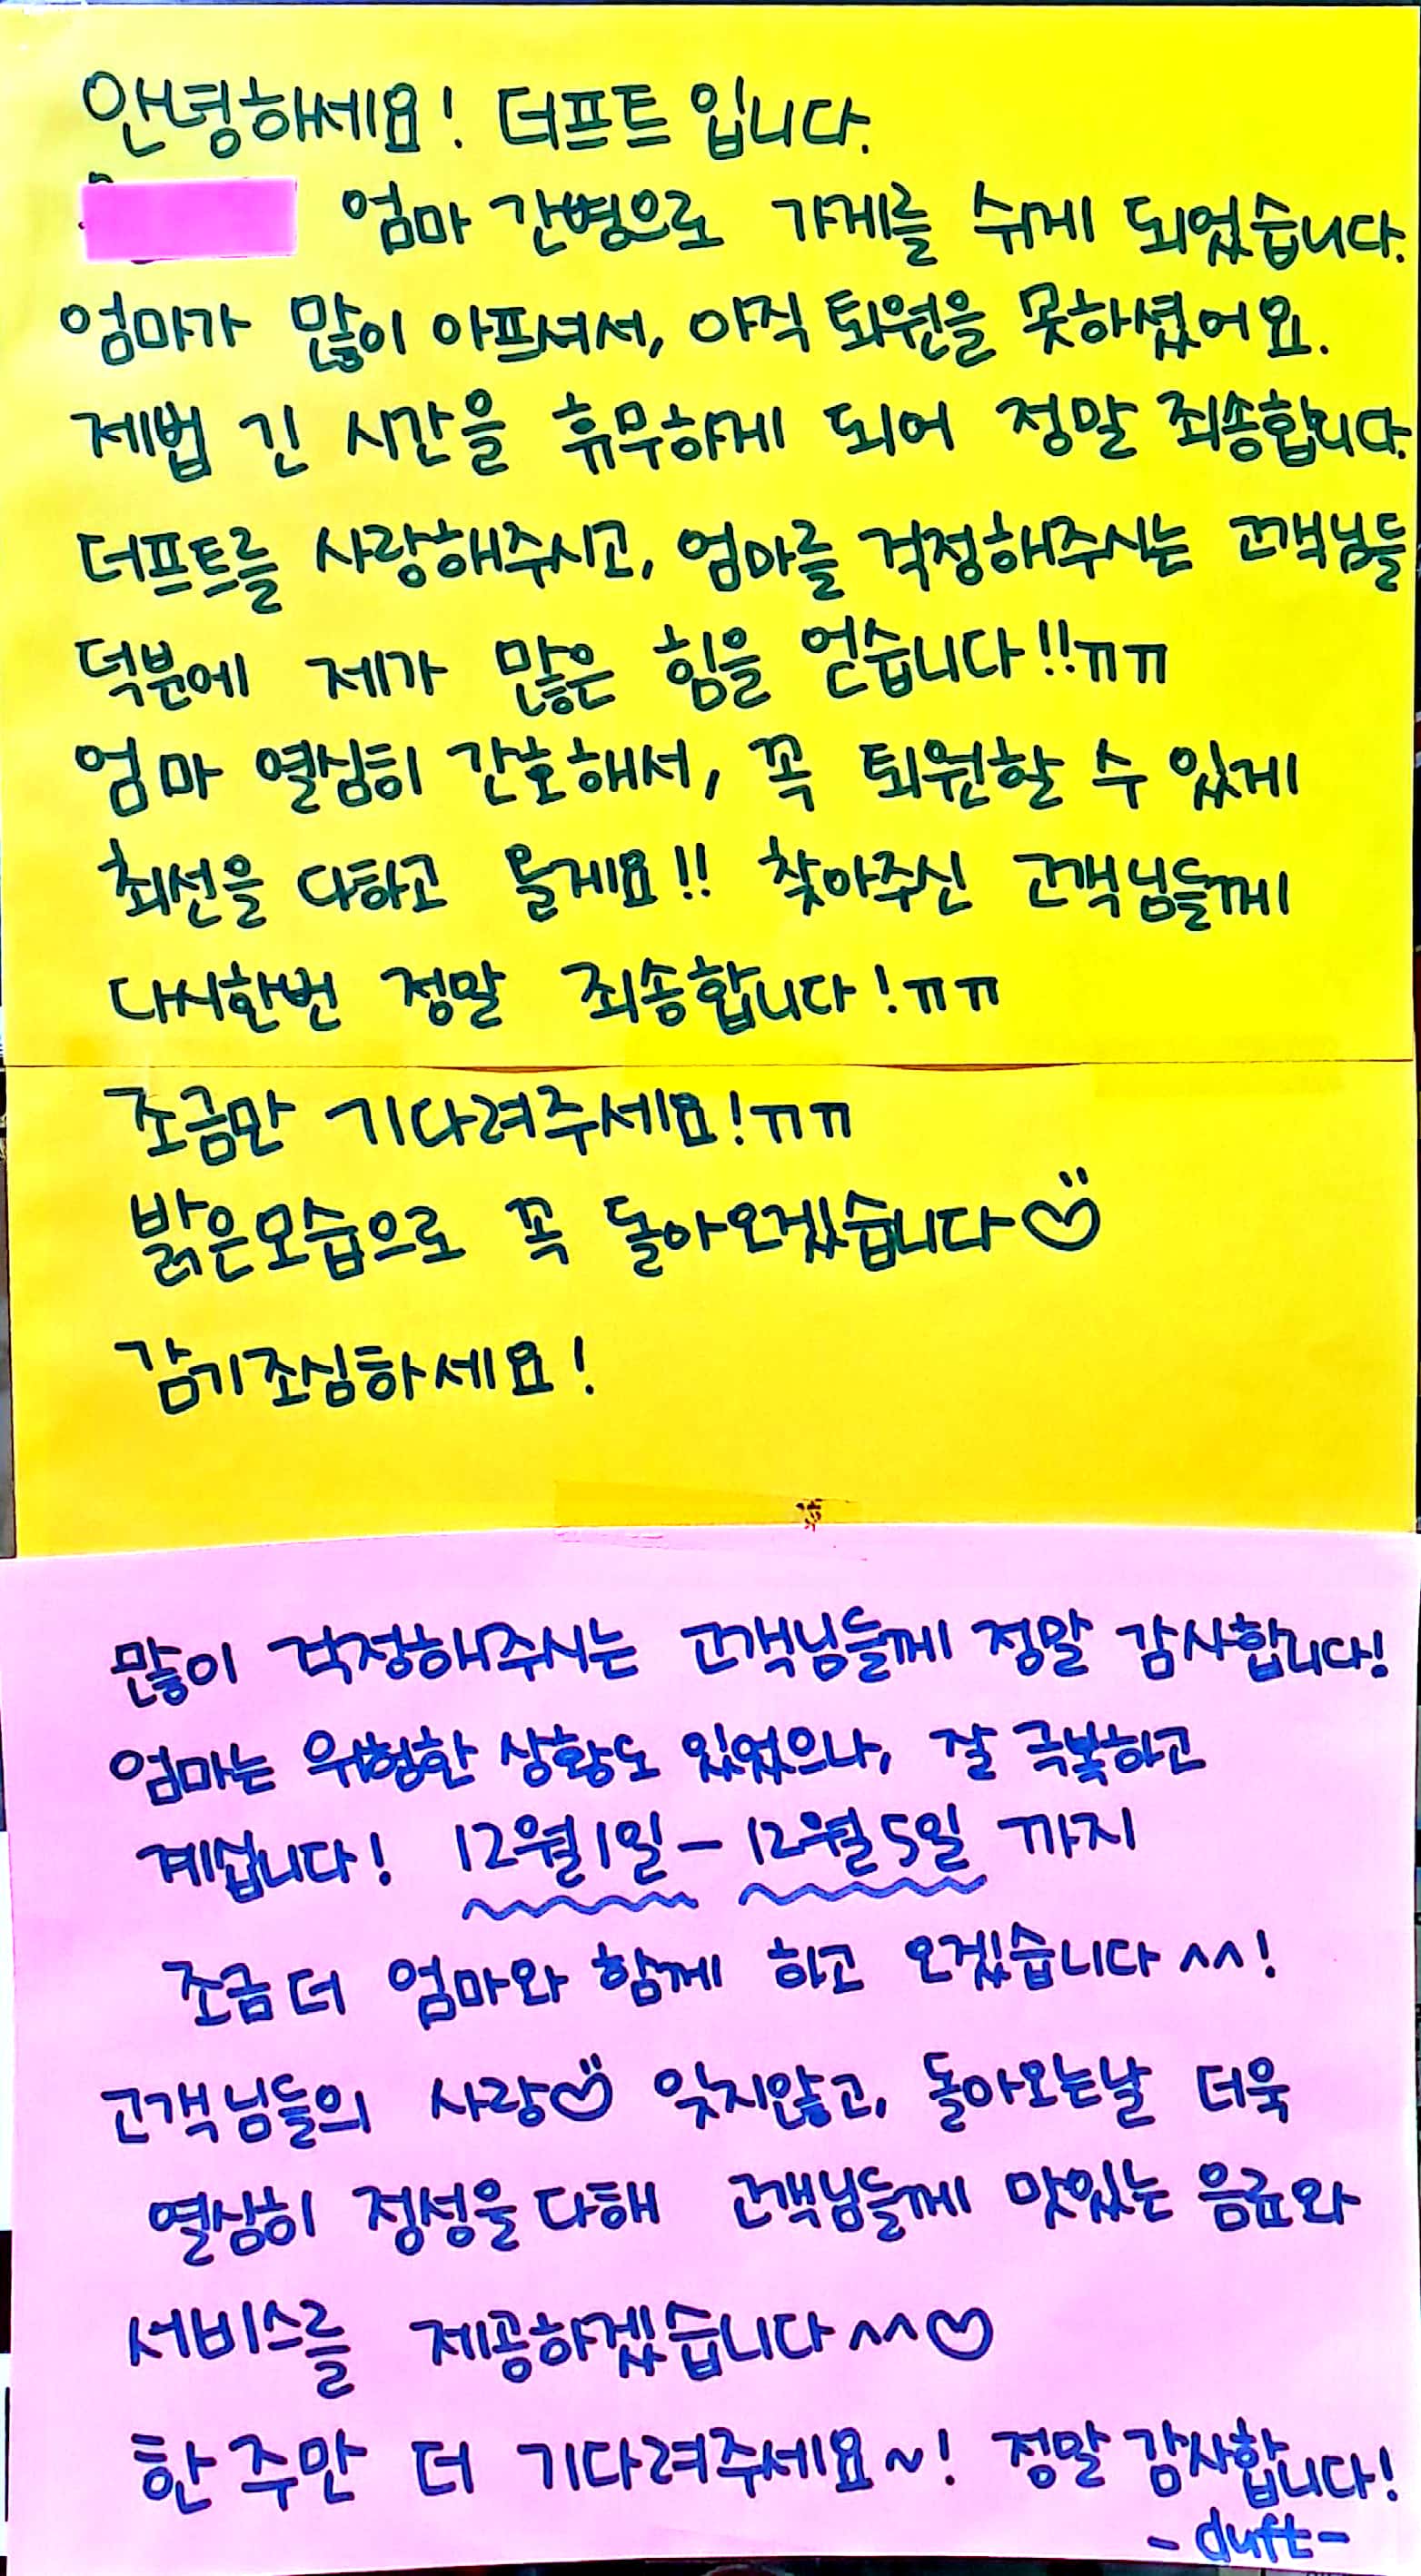 안녕하세요! 더프트 입니다.
엄마 간병으로 가게를 쉬게 되었습니다.
엄마가 많이 아프셔서, 아직 퇴원을 못하셨어요.
제법 긴 시간을 휴무하게 되어 정말 죄송합니다.
더프트를 사랑해주시고, 엄마를 걱정해주시는 고객님들
덕분에 제가 많은 힘을 얻습니다!!ㅠㅠ
엄마 열심히 간호해서, 꼭 퇴원할 수 있게
최선을 다하고 올게요!! 찾아주신 고객님들께
다시한번 정말 죄송합니다!ㅠㅠ
조금만 기다려주세요!ㅠㅠ
밝은모습으로 꼭 돌아오겠습니다♡
감기조심하세요!
많이 걱정해주시는 고객님들께 정말 감사합니다!
엄마는 위험한 상황도 있었으나, 잘 극복하고
계십니다! 12월1일-12월5일 까지
조금더 엄마와 함께 하고 오겠습니다^^!
고객님들의 사랑♡ 잊지않고, 돌아오는날 더욱
열심히 정성을 다해 고객님들께 맛있는 음료와
서비스를 제공하겠습니다^^♡
한 주만 더 기다려주세요~! 정말 감사합니다!
-duft-